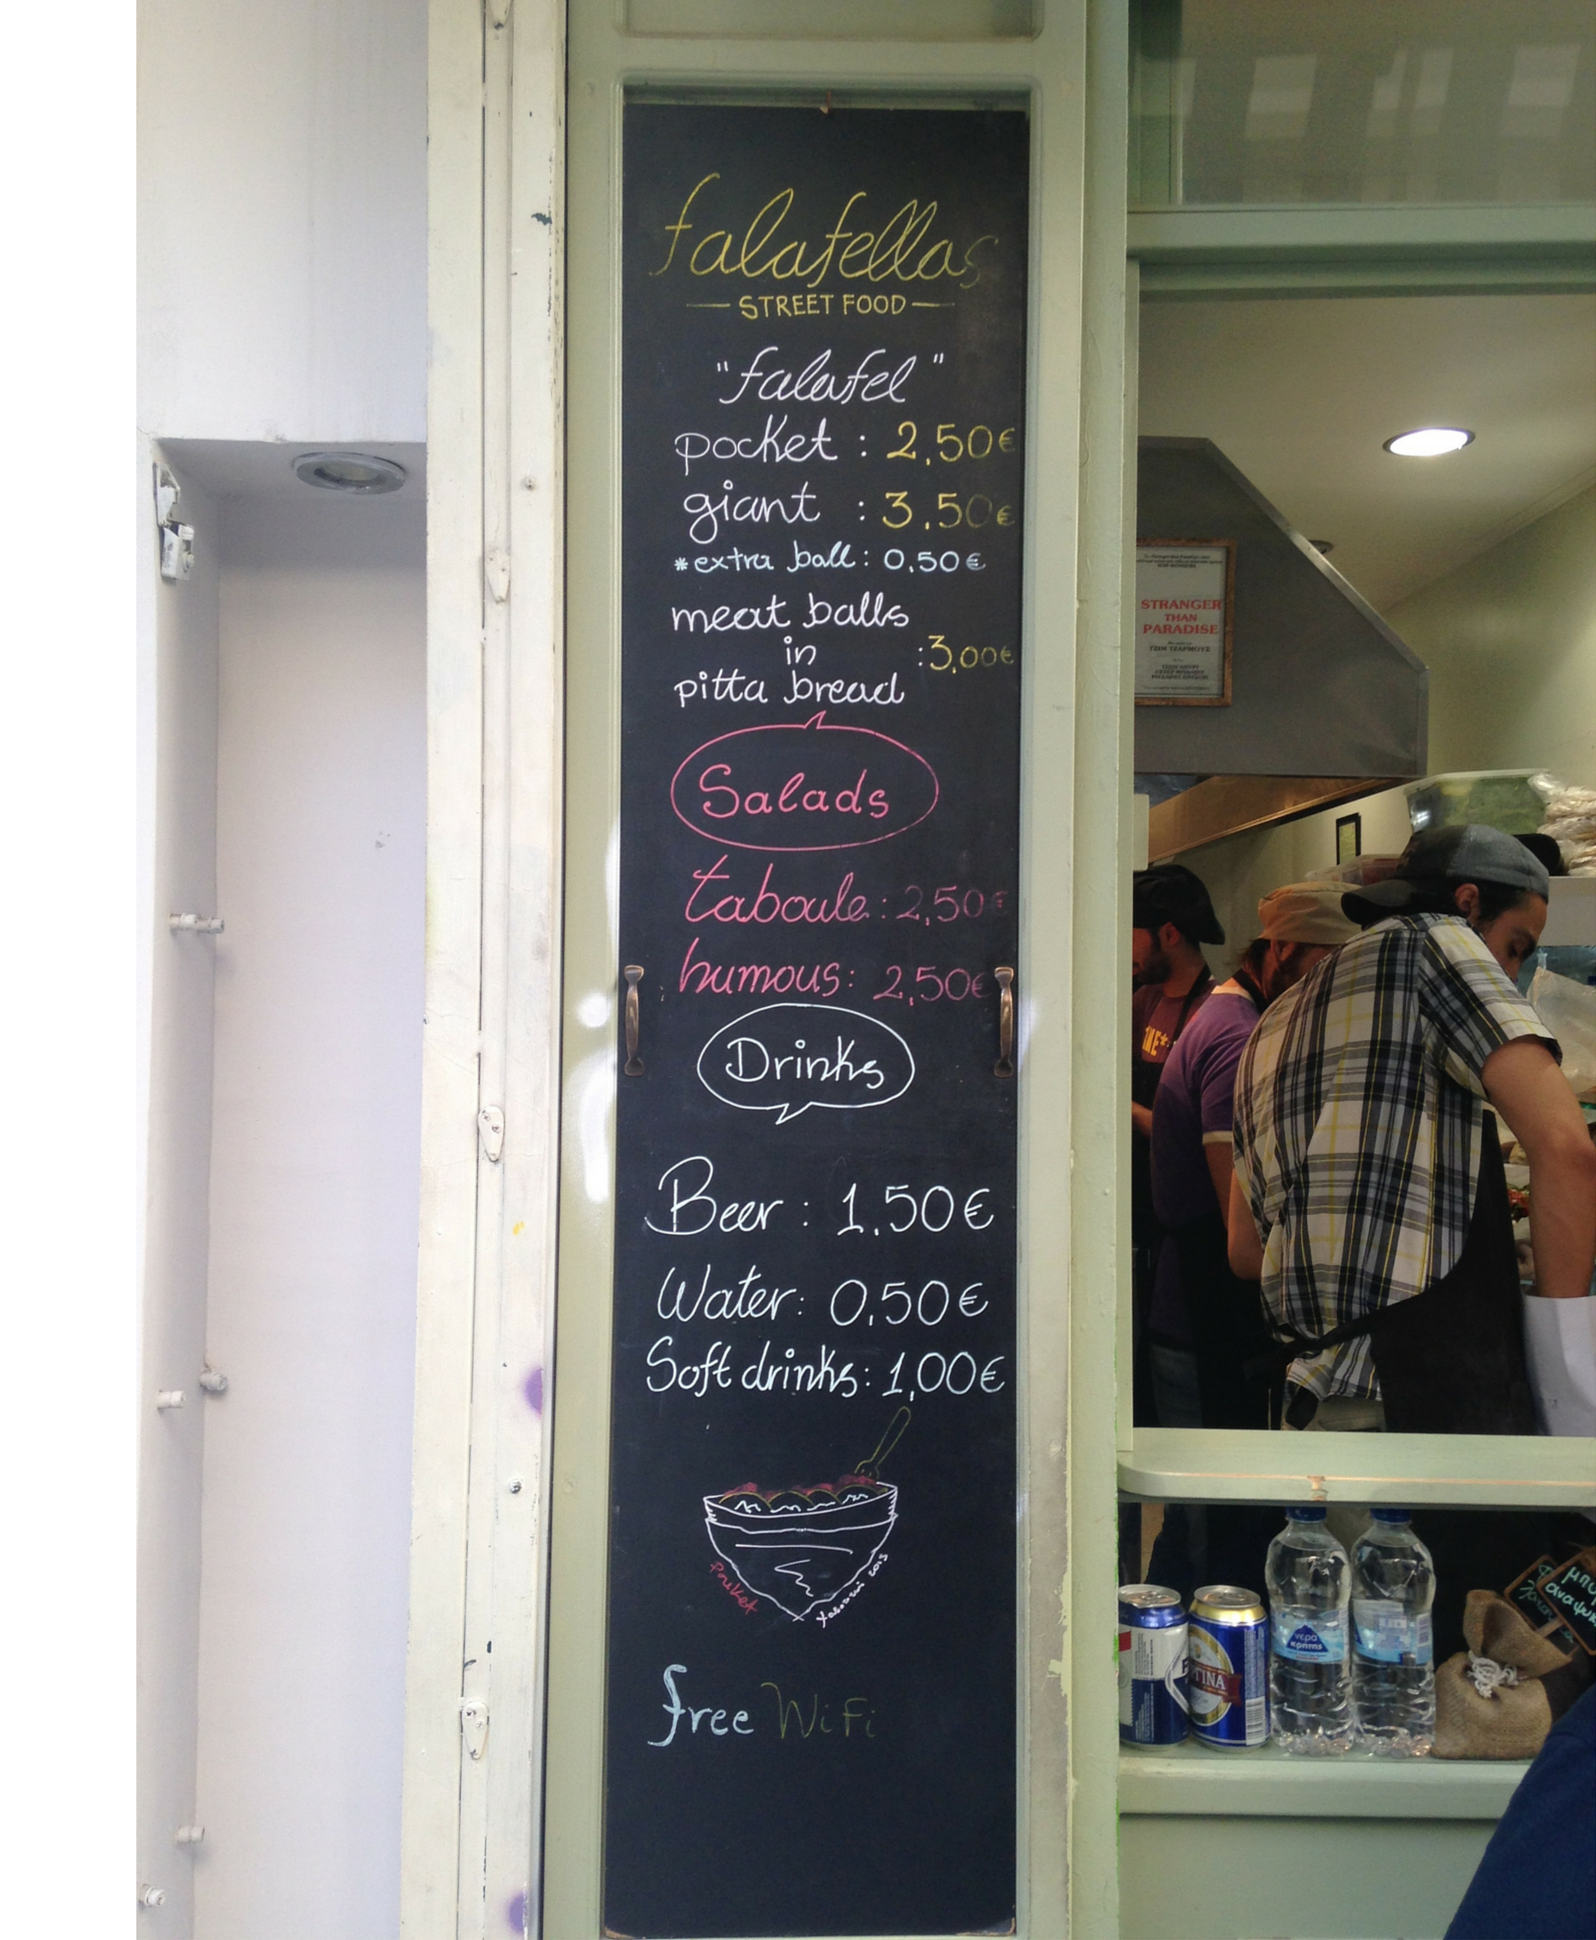 falafellas
STREET FOOD
"falafel"
pocket : 2,50€
giant : 3,50€
*extra ball: 0,50€
meat balls
in :3,00€
pitta bread
Salads
taboule: 2,50€
humous: 2,50€
Drinks
Beer : 1,50€
Water: 0,50€
Soft drinks: 1,00€
free WiFi
STRANGER
THAN
PARADISE
ΤΖΙΜ ΤΖΑΡΜΟΥΣ
νερά
κρήτης